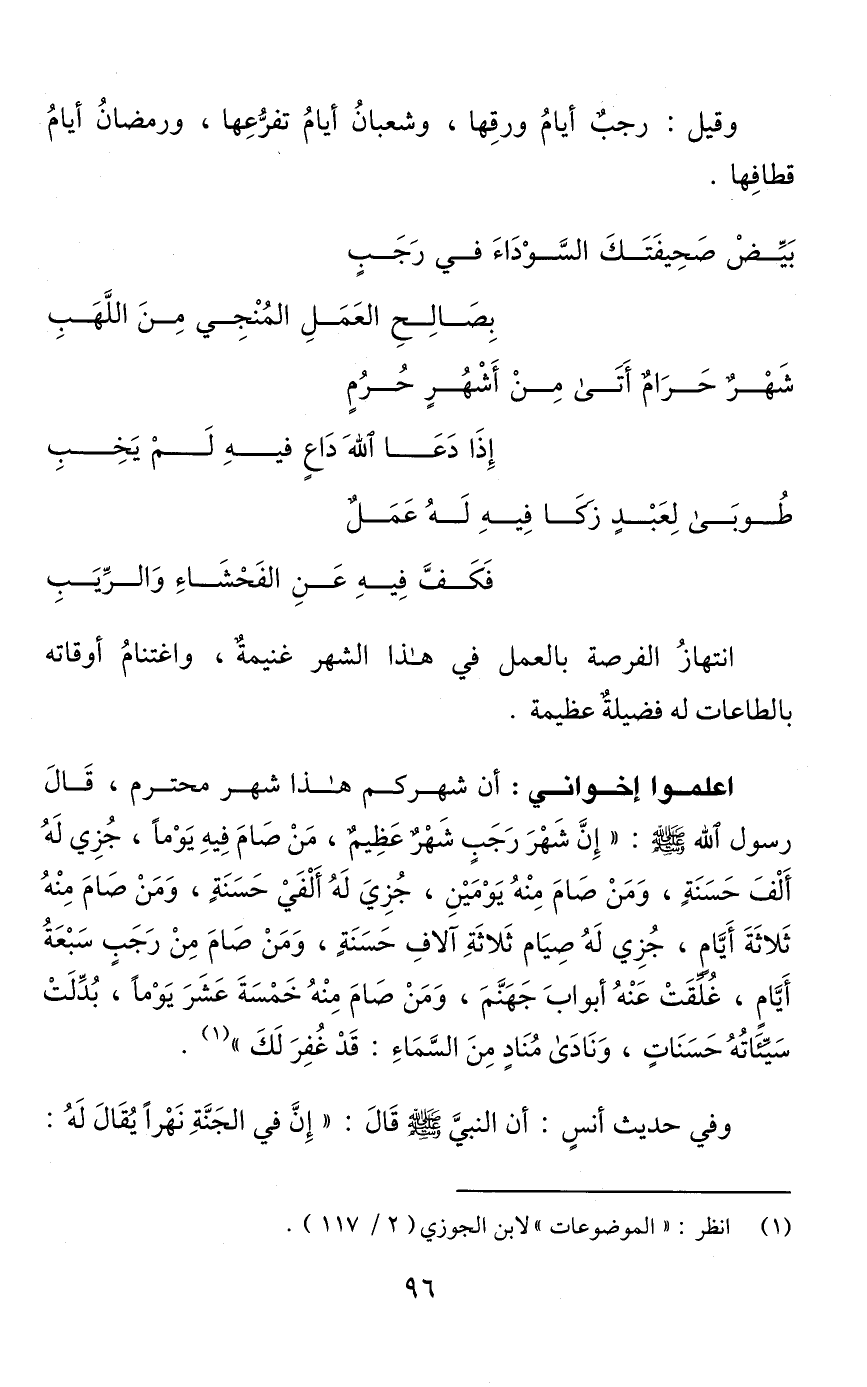 وقيل : رجبٌ أيامُ ورقِها ، وشعبانُ أيامُ تفرُّعِها ، ورمضانُ أيامُ
قطافِها .
بَيِّضْ صَحِيفَتَكَ السَّوْدَاءَ في رَجَبٍ
بِصَالِحِ العَمَلِ المُنْجِي مِنَ اللَّهَبِ
شَهْرٌ حَرَامٌ أَتَىٰ مِنْ أَشْهُرٍ حُرُمٍ
إِذَا دَعَا ٱللهَ دَاعٍ فيهِ لَمْ يَخِبِ
طُوبَىٰ لِعَبْدٍ زَكَا فِيهِ لَهُ عَمَلٌ
فَكَفَّ فِيهِ عَنِ الفَحْشَاءِ وَالرِّيَبِ
انتهازُ الفرصة بالعمل في هـٰذا الشهر غنيمةٌ ، واغتنامُ أوقاته
بالطاعات له فضيلةٌ عظيمة .
اعلموا إخواني : أن شهركم هـٰذا شهر محترم ، قَالَ
رسول ٱلله ﷺ : « إِنَّ شَهْرَ رَجَبٍ شَهْرٌ عَظِيمٌ ، مَنْ صَامَ فِيهِ يَوْماً ، جُزِي لَهُ
أَلْفَ حَسَنَةٍ ، وَمَنْ صَامَ مِنْهُ يَوْمَيْنِ ، جُزِيَ لَهُ أَلْفَيْ حَسَنَةٍ ، وَمَنْ صَامَ مِنْهُ
ثَلاثَةَ أَيَّامٍ ، جُزِي لَهُ صِيَام ثَلاثَةِ آلافِ حَسَنَةٍ ، وَمَنْ صَامَ مِنْ رَجَبٍ سَبْعَةَ
أَيَّامٍ ، غُلِّقَتْ عَنْهُ أبوابَ جَهَنَّمَ ، وَمَنْ صَامَ مِنْهُ خَمْسَةَ عَشَرَ يَوْماً ، بُدِّلَتْ
سَيِّئَاتُهُ حَسَنَاتٍ ، وَنَادَىٰ مُنَادٍ مِنَ السَّمَاءِ : قَدْ غُفِرَ لَكَ »(١) .
وفي حديث أنسٍ : أن النبيَّ ﷺ قَالَ : « إِنَّ في الجَنَّةِ نَهْراً يُقَالَ لَهُ :
(١) انظر : « الموضوعات » لابن الجوزي ( ٢ / ١١٧ ) .
٩٦